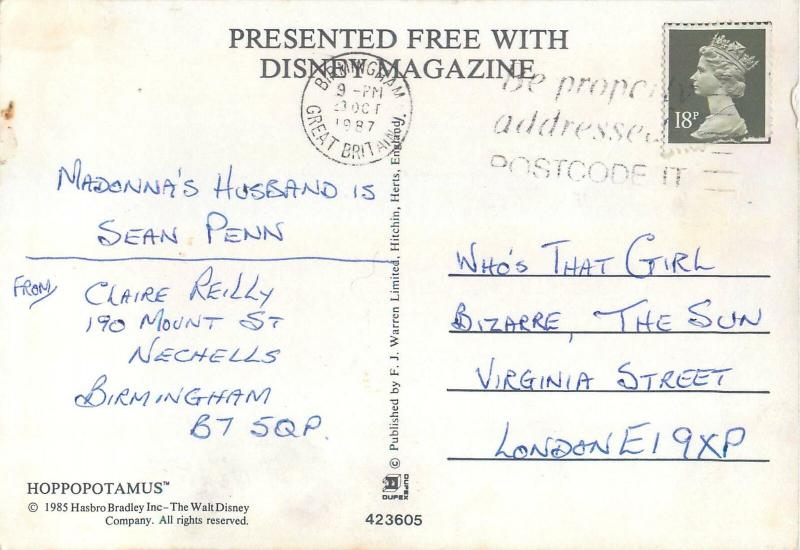 PRESENTED FREE WITH
DISNEY MAGAZINE
BIRMINGHAM
9-PM
OCT
1987
GREAT BRITAIN
Be properly
addressed
POSTCODE IT
18P
MADONNA'S HUSBAND IS
SEAN PENN
FROM CLAIRE REILLY
190 MOUNT ST
NECHELLS
BIRMINGHAM
B7 5QP.
WHO'S THAT GIRL
BIZARRE, THE SUN
VIRGINIA STREET
LONDON E1 9XP
© Published by F. J. Warren Limited, Hitchin, Herts, England.
DUFEX
HOPPOPOTAMUS™
© 1985 Hasbro Bradley Inc–The Walt Disney
Company. All rights reserved.
423605